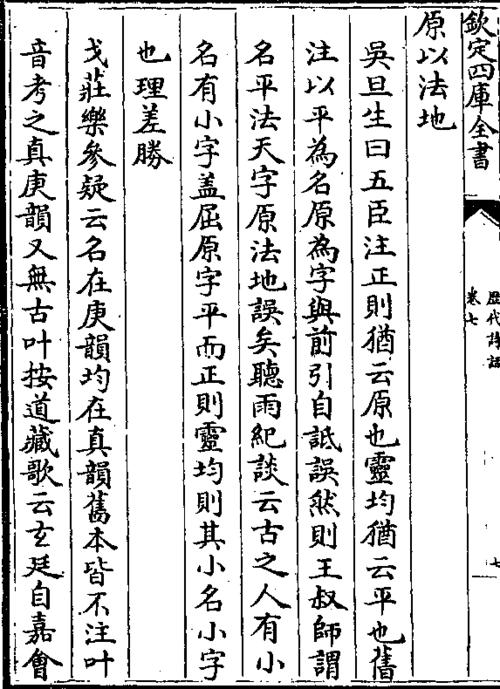 欽定四庫全書
歷代詩話
卷七
七
原以法地
吳旦生曰五臣注正則猶云原也靈均猶云平也舊
注以平為名原為字與前引自詆誤然則王叔師謂
名平法天字原法地誤矣聽雨紀談云古之人有小
名有小字盖屈原字平而正則靈均則其小名小字
也理差勝
戈莊樂參疑云名在庚韻均在真韻舊本皆不注叶
音考之真庚韻又無古叶按道藏歌云玄廷自嘉會